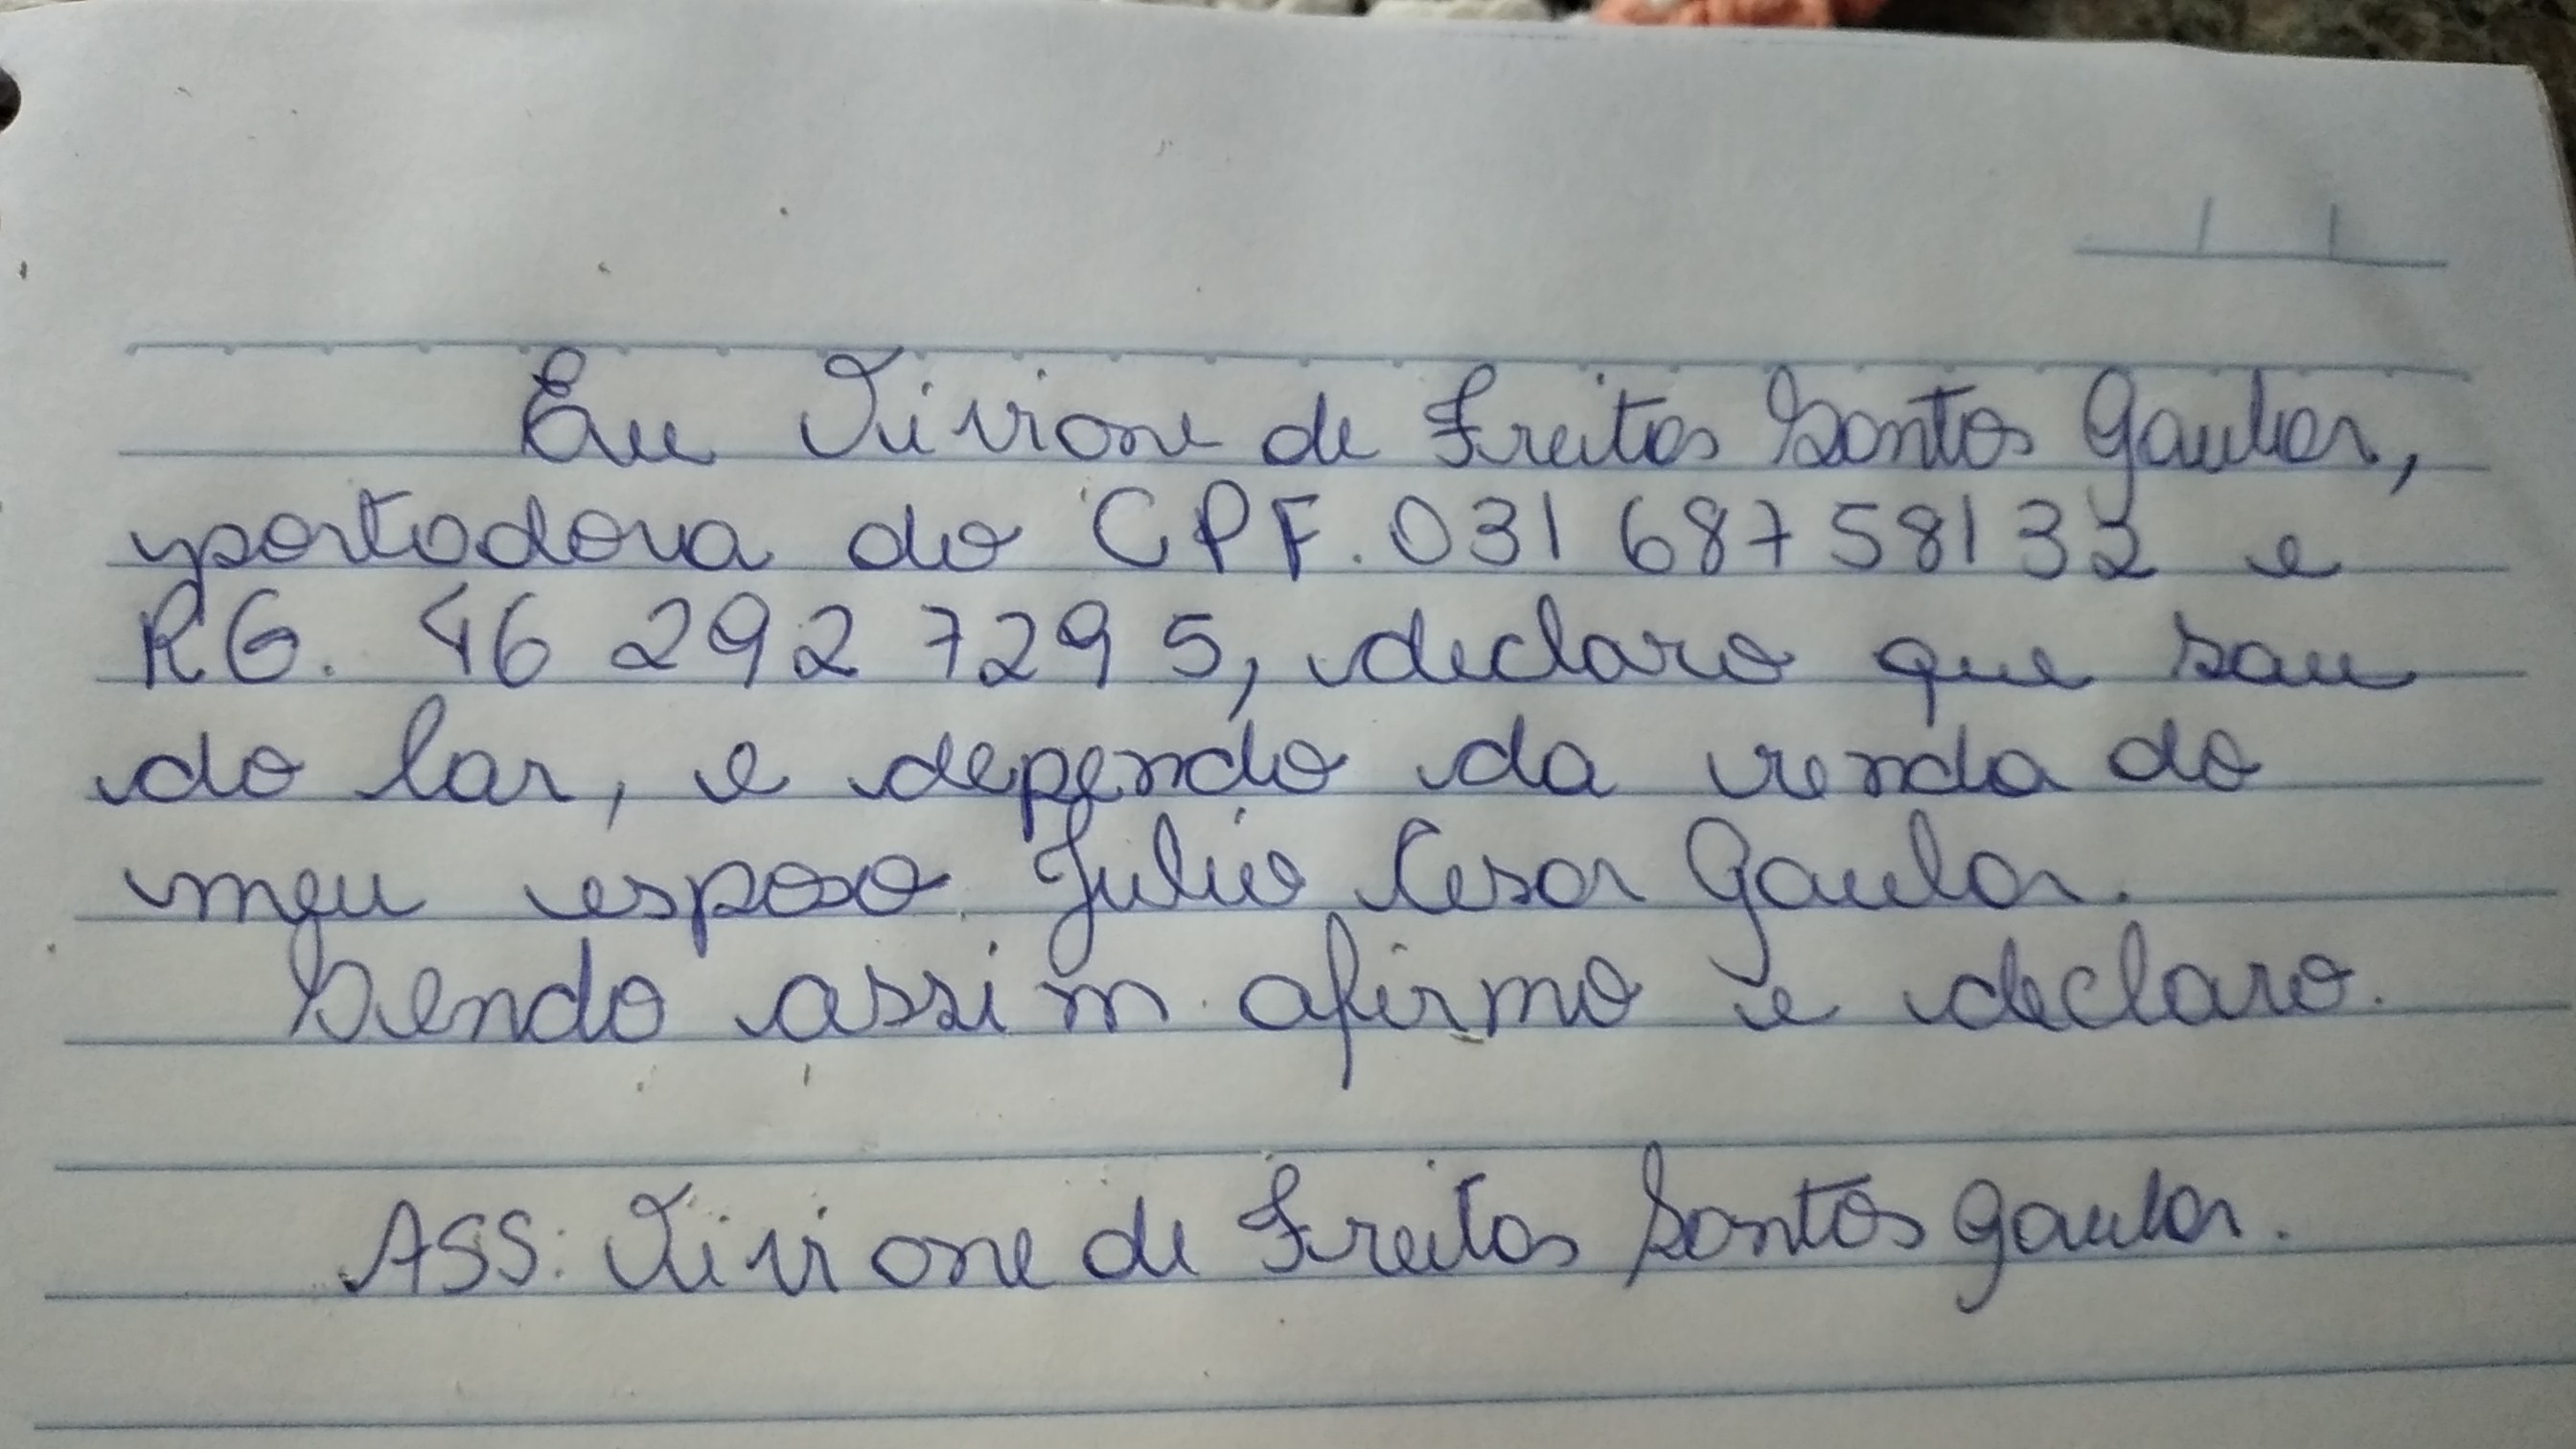 Eu Viviane de Freitas Santos Gaular,
portadora do CPF. 031 687 58132 e
RG. 46 292 729 5, declaro que sou
do lar, e dependo da renda do
meu esposo Julio Cesar Gaular.
Sendo assim afirmo e declaro.
ASS: Viviane de Freitas Santos Gaular.